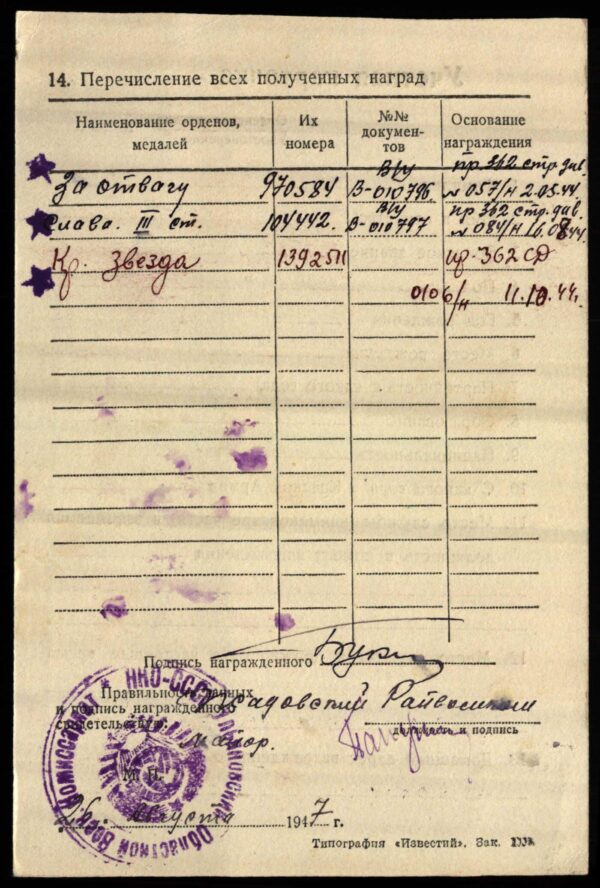 14. Перечисление всех полученных наград
Наименование орденов, медалей
Их номера
№№ документов
Основание награждения
За отвагу 970584 В/у В-010796 пр 362 стр. див. № 057/н 2.05.44
Слава III ст. 104442. В/у В-010797 пр 362 стр. див. № 084/н 16.08.44
Кр. звезда 1392511 пр. 362 СД
0106/н 11.10.44г.
Подпись награжденного
Правильность данных
и подпись награжденного
свидетельствую:
Майор.
должность и подпись
М. П.
26. Августа 1947 г.
Типография «Известий». Зак.